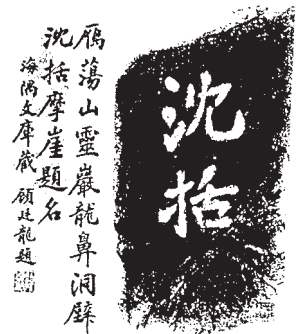 沈括
雁蕩山靈巖龍鼻洞壁
沈括摩崖題名
海隅文庫藏 顧廷龍題